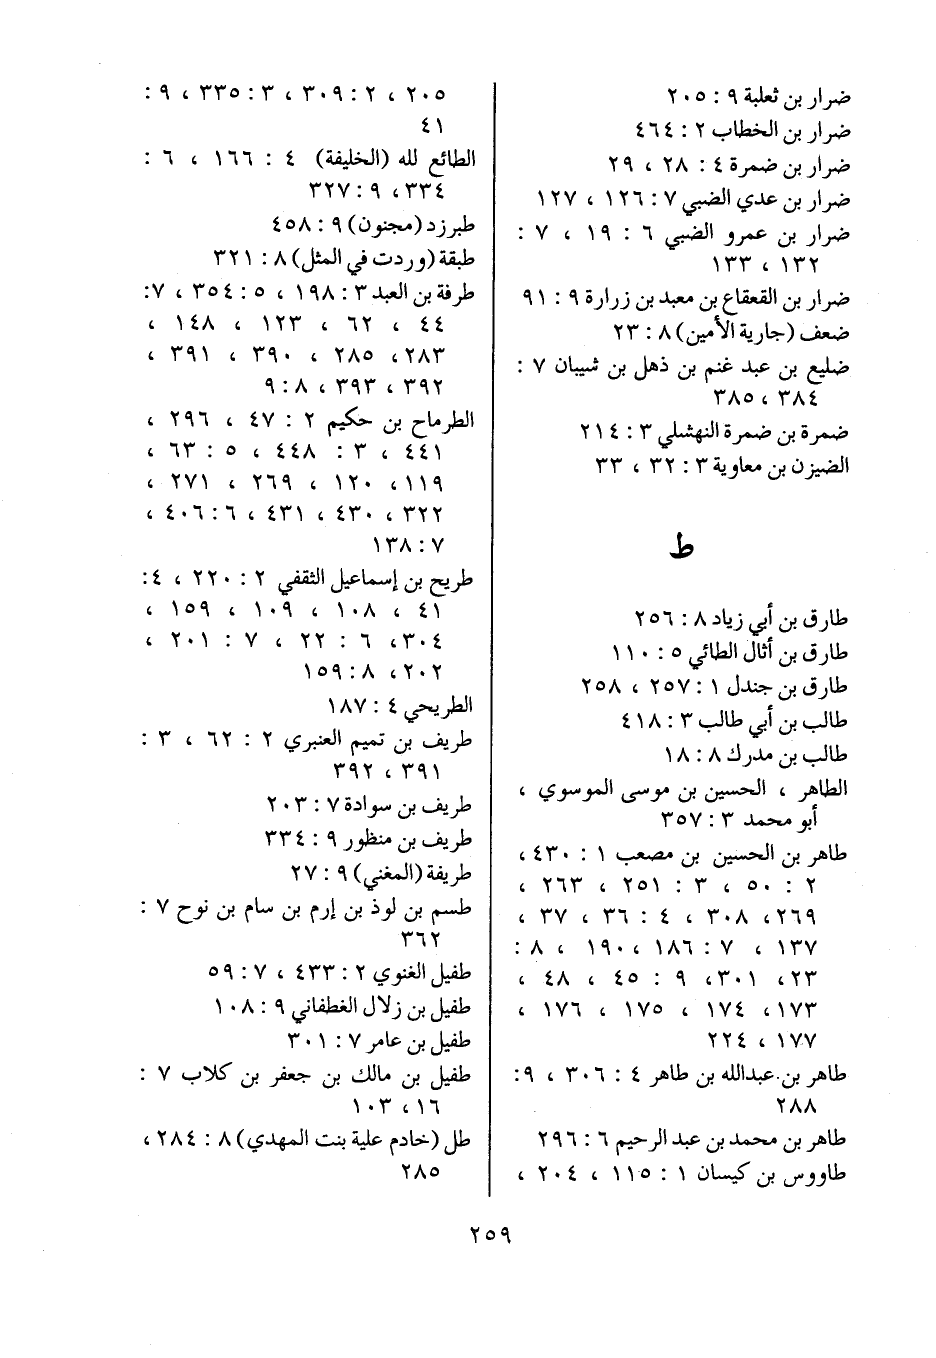 ضرار بن ثعلبة ٩ : ٢٠٥
ضرار بن الخطاب ٢ : ٤٦٤
ضرار بن ضمرة ٤ : ٢٨ ، ٢٩
ضرار بن عدي الضبي ٧ : ١٢٦ ، ١٢٧
ضرار بن عمرو الضبي ٦ : ١٩ ، ٧ :
١٣٢ ، ١٣٣
ضرار بن القعقاع بن معبد بن زرارة ٩ : ٩١
ضعف (جارية الأمين) ٨ : ٢٣
ضليع بن عبد غنم بن ذهل بن شيبان ٧ :
٣٨٤ ، ٣٨٥
ضمرة بن ضمرة النهشلي ٣ : ٢١٤
الضيزن بن معاوية ٣ : ٣٢ ، ٣٣
ط
طارق بن أبي زياد ٨ : ٢٥٦
طارق بن أثال الطائي ٥ : ١١٠
طارق بن جندل ١ : ٢٥٧ ، ٢٥٨
طالب بن أبي طالب ٣ : ٤١٨
طالب بن مدرك ٨ : ١٨
الطاهر ، الحسين بن موسى الموسوي ،
أبو محمد ٣ : ٣٥٧
طاهر بن الحسين بن مصعب ١ : ٤٣٠ ،
٢ : ٥٠ ، ٣ : ٢٥١ ، ٢٦٣ ،
٢٦٩ ، ٣٠٨ ، ٤ : ٣٦ ، ٣٧ ،
١٣٧ ، ٧ : ١٨٦ ، ١٩٠ ، ٨ :
٢٣ ، ٣٠١ ، ٩ : ٤٥ ، ٤٨ ،
١٧٣ ، ١٧٤ ، ١٧٥ ، ١٧٦ ،
١٧٧ ، ٢٢٤
طاهر بن عبدالله بن طاهر ٤ : ٣٠٦ ، ٩ :
٢٨٨
طاهر بن محمد بن عبد الرحيم ٦ : ٢٩٦
طاووس بن كيسان ١ : ١١٥ ، ٢٠٤ ،
٢٠٥ ، ٢ : ٣٠٩ ، ٣ : ٣٣٥ ، ٩ :
٤١
الطائع لله (الخليفة) ٤ : ١٦٦ ، ٦ :
٣٣٤ ، ٩ : ٣٢٧
طبرزد (مجنون) ٩ : ٤٥٨
طبقة (وردت في المثل) ٨ : ٣٢١
طرفة بن العبد ٣ : ١٩٨ ، ٥ : ٣٥٤ ، ٧ :
٤٤ ، ٦٢ ، ١٢٣ ، ١٤٨ ،
٢٨٣ ، ٢٨٥ ، ٣٩٠ ، ٣٩١ ،
٣٩٢ ، ٣٩٣ ، ٨ : ٩
الطرماح بن حكيم ٢ : ٤٧ ، ٢٩٦ ،
٤٤١ ، ٣ : ٤٤٨ ، ٥ : ٦٣ ،
١١٩ ، ١٢٠ ، ٢٦٩ ، ٢٧١ ،
٣٢٢ ، ٤٣٠ ، ٤٣١ ، ٦ : ٤٠٦ ،
٧ : ١٣٨
طريح بن إسماعيل الثقفي ٢ : ٢٢٠ ، ٤ :
٤١ ، ١٠٨ ، ١٠٩ ، ١٥٩ ،
٣٠٤ ، ٦ : ٢٢ ، ٧ : ٢٠١ ،
٢٠٢ ، ٨ : ١٥٩
الطريحي ٤ : ١٨٧
طريف بن تميم العنبري ٢ : ٦٢ ، ٣ :
٣٩١ ، ٣٩٢
طريف بن سوادة ٧ : ٢٠٣
طريف بن منظور ٩ : ٣٣٤
طريفة (المغني) ٩ : ٢٧
طسم بن لوذ بن إرم بن سام بن نوح ٧ :
٣٦٢
طفيل الغنوي ٢ : ٤٣٣ ، ٧ : ٥٩
طفيل بن زلال الغطفاني ٩ : ١٠٨
طفيل بن عامر ٧ : ٣٠١
طفيل بن مالك بن جعفر بن كلاب ٧ :
١٦ ، ١٠٣
طل (خادم علية بنت المهدي) ٨ : ٢٨٤ ،
٢٨٥
٢٥٩